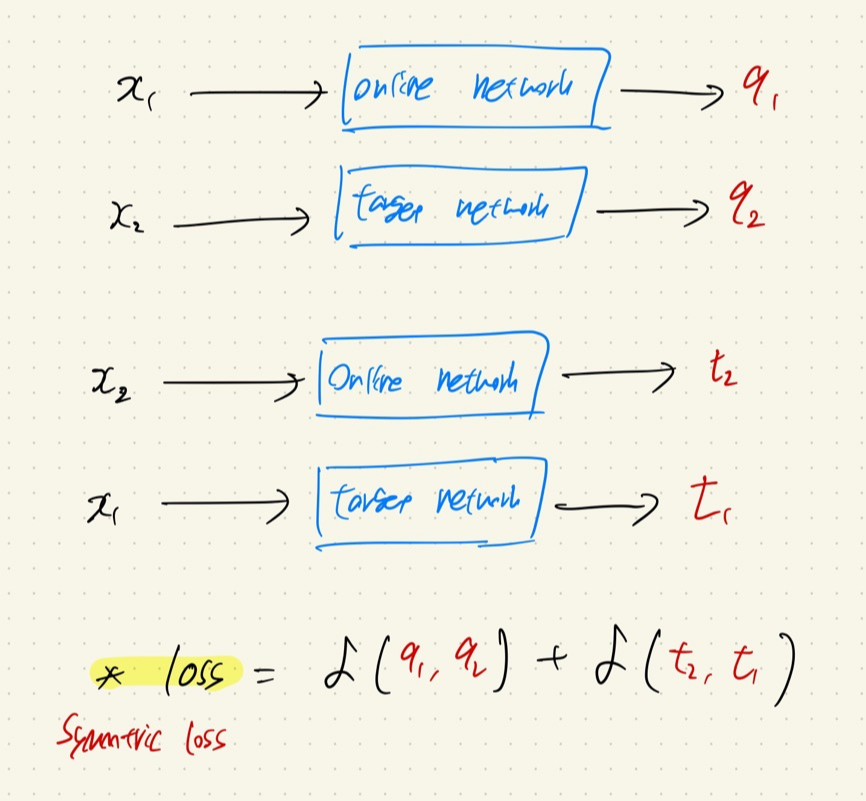 x₁ → online network → q₁
x₂ → target network → q₂
x₂ → Online network → t₂
x₁ → target network → t₁
* loss = L(q₁, q₂) + L(t₂, t₁)
Symmetric loss